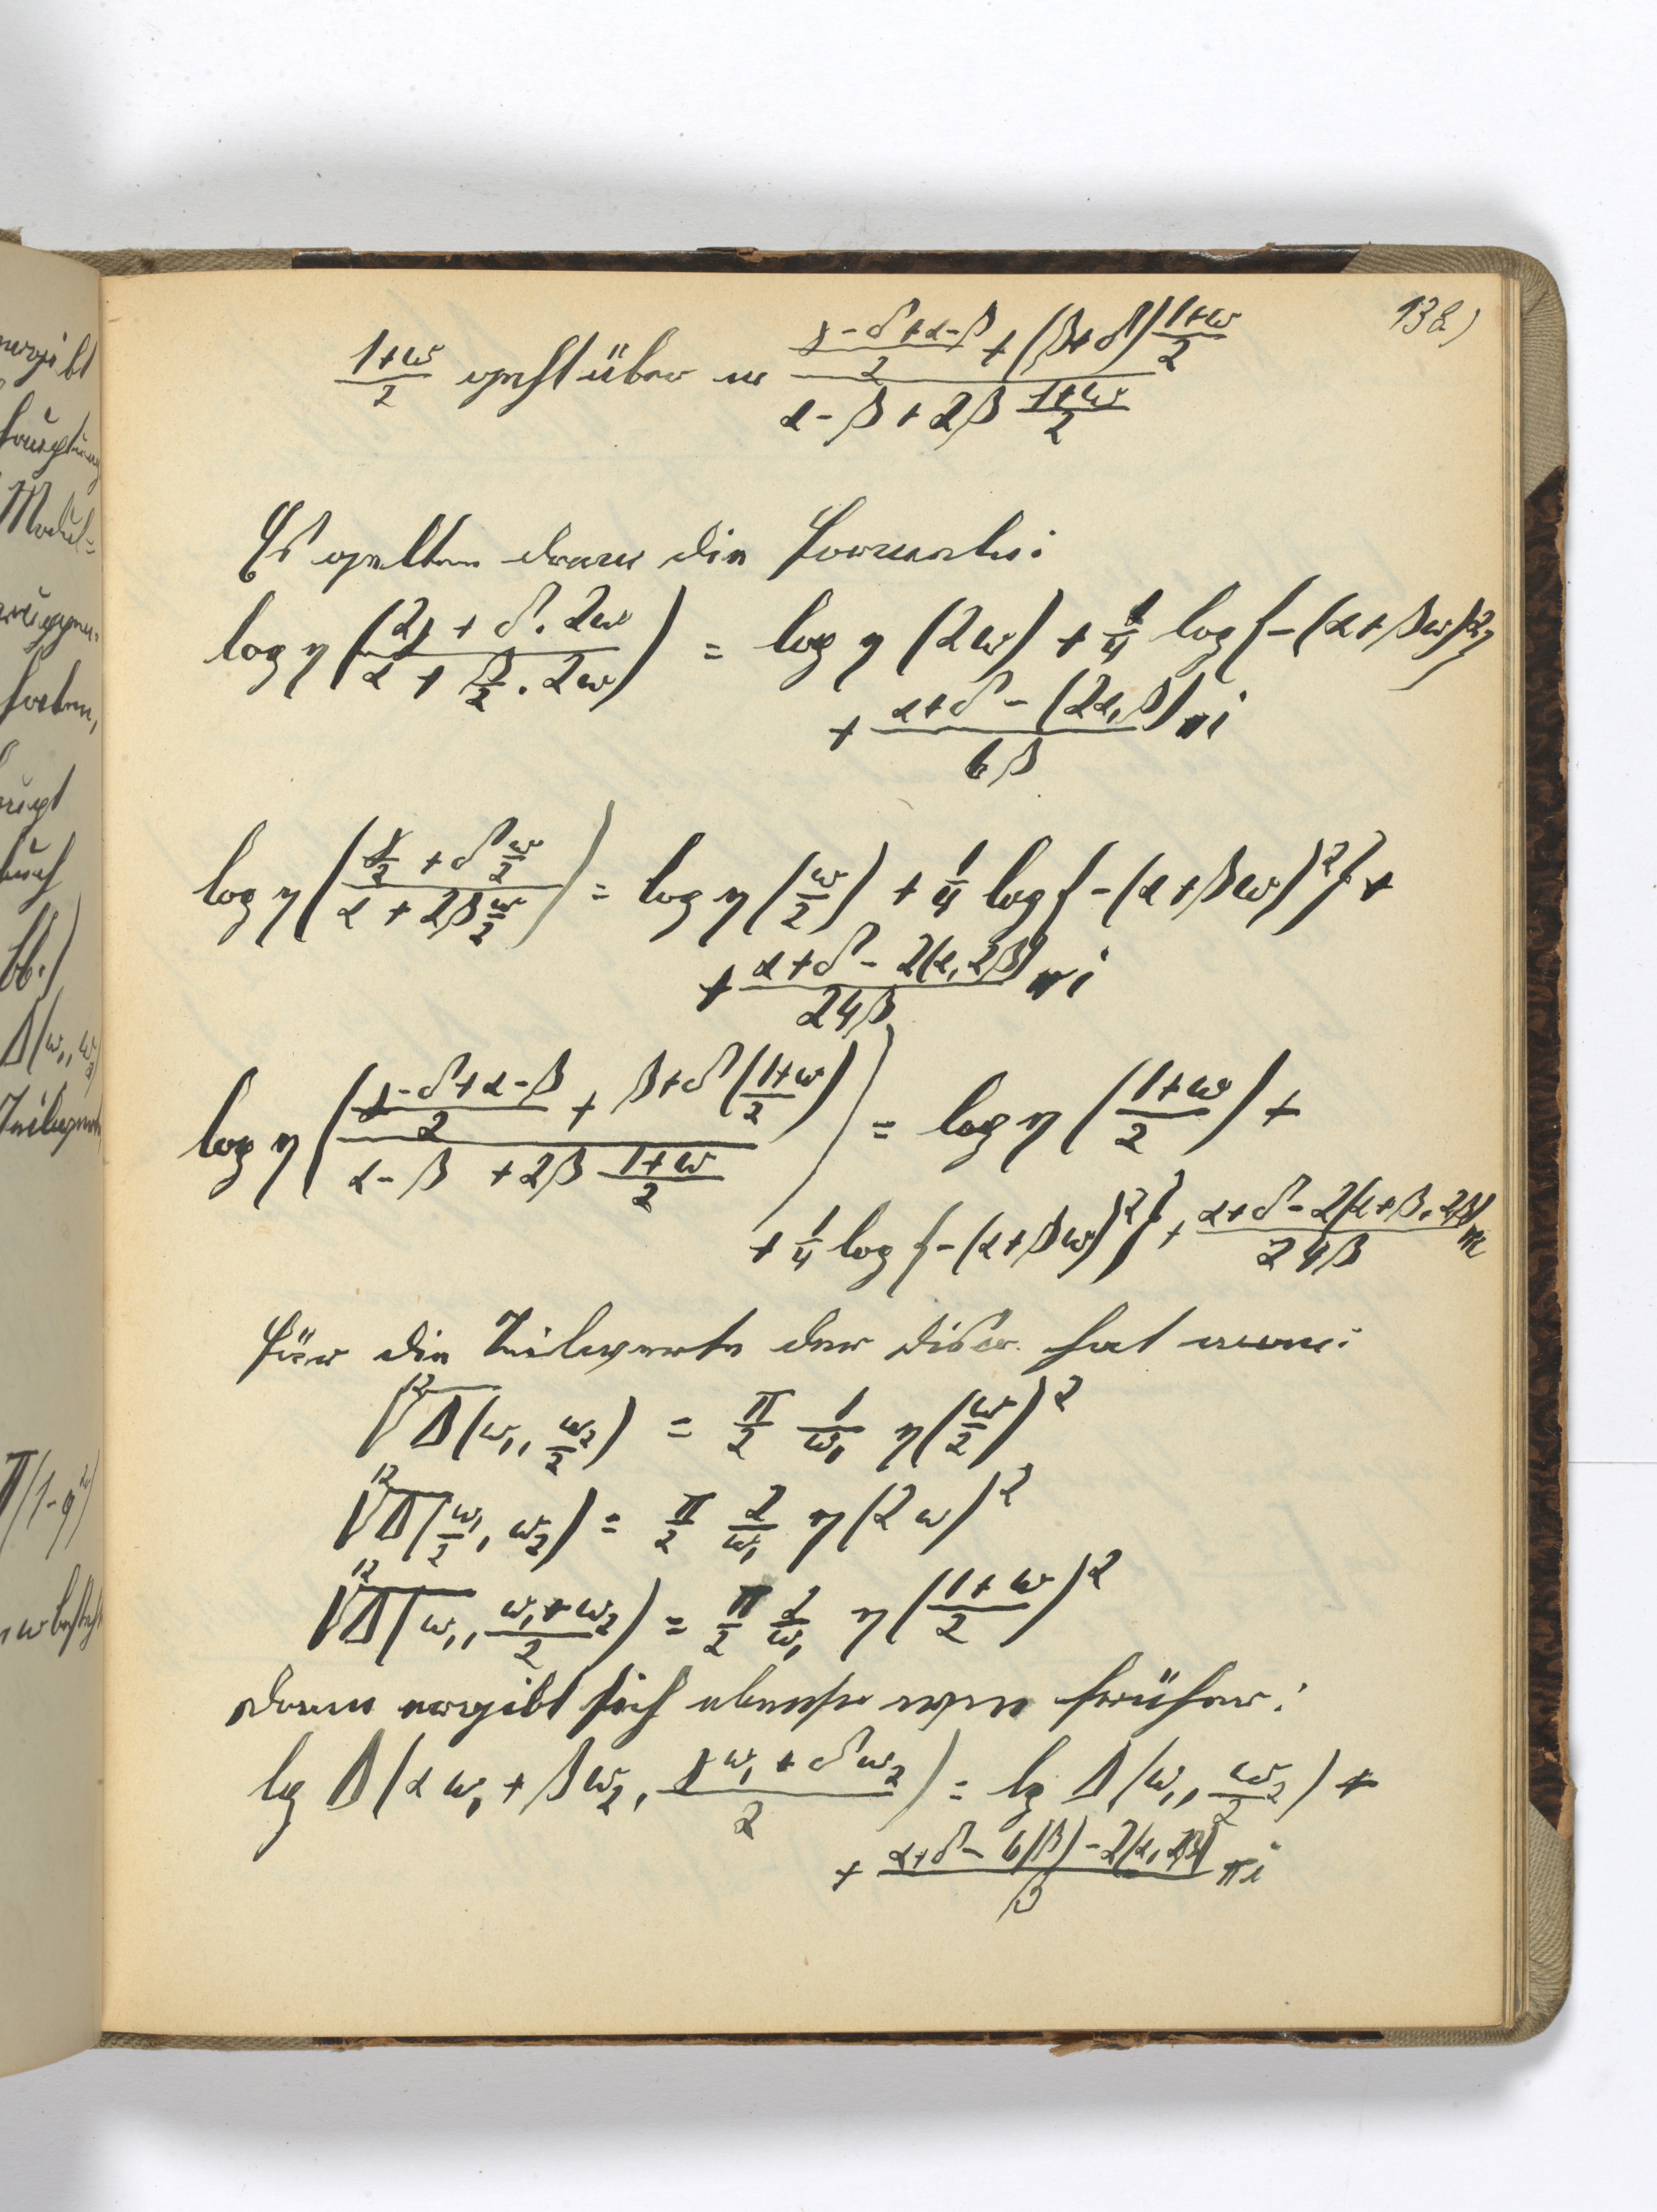 138)
(1+ω)/2 geht über in ((γ-δ+α-β)/2 + (β+δ) (1+ω)/2) / (α-β+2β (1+ω)/2)
Es gelten dann die Formeln:
log η ((2γ + δ. 2ω)/(α + β/2 . 2ω)) = log η (2ω) + 1/4 log {-(α+βω)²}
+ (α+δ - (2α, β))/(6β) πi
log η ((γ/2 + δ ω/2)/(α + 2β ω/2)) = log η (ω/2) + 1/4 log {-(α+βω)²} +
+ (α+δ - 2(α, 2β))/(24β) πi
log η (((γ-δ+α-β)/2 + β+δ ((1+ω)/2))/(α-β +2β (1+ω)/2)) = log η ((1+ω)/2) +
+ 1/4 log {-(α+βω)²} + (α+δ-2(α+β, 2β))/(24β) πi
Für die Teilwerte der Discr. hat man:
¹²√Δ(ω₁, ω₂/2) = π/2 1/ω₁ η(ω/2)²
¹²√Δ(ω₁/2, ω₂) = π/2 2/ω₁ η(2ω)²
¹²√Δ(ω₁, (ω₁+ω₂)/2) = π/2 2/ω₁ η((1+ω)/2)²
Dann ergibt sich ebenso wie früher:
lg Δ(αω₁ + βω₂, (γω₁ + δω₂)/2) = lg Δ(ω₁, ω₂/2) +
+ (α+δ - 6(β) - 2(α, 2β))/β πi
ergibt
Modul-
haben,
bb.)
Δ(ω₁, ω₂)
Teilwerte
π(1-q